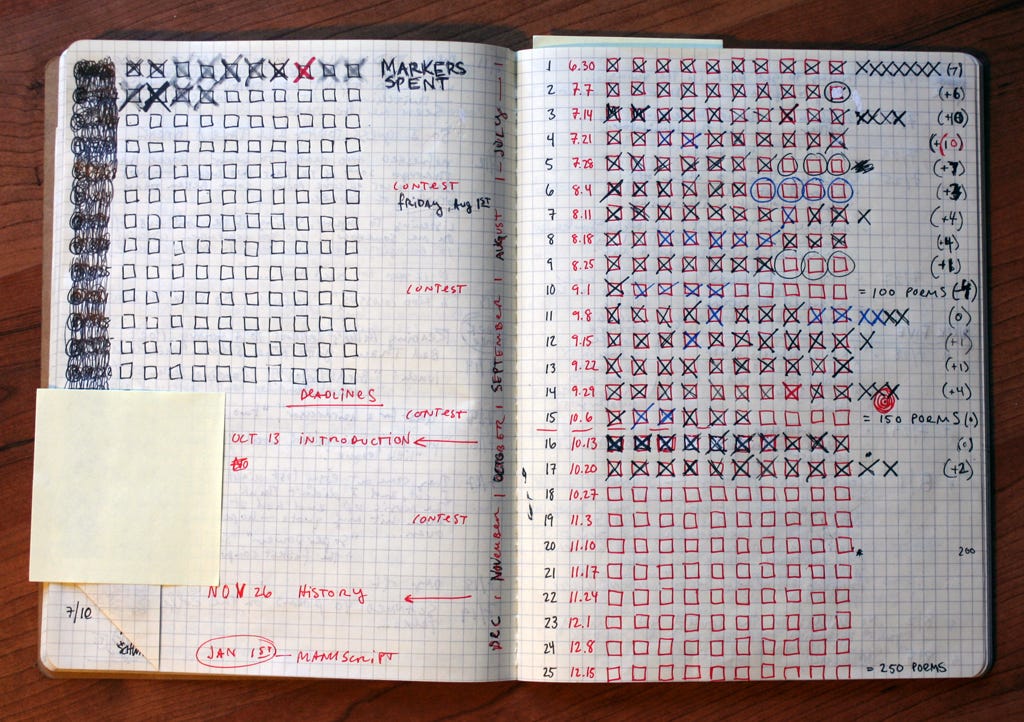 MARKERS
SPENT
CONTEST
FRIDAY, AUG 1ST
CONTEST
DEADLINES
CONTEST
OCT 13 INTRODUCTION
CONTEST
NOV 26 HISTORY
7/10
JAN 1ST — MANUSCRIPT
DEC | NOVEMBER | OCTOBER | SEPTEMBER | AUGUST | JULY
1 6.30 (7)
2 7.7 (+6)
3 7.14
4 7.21 (+10)
5 7.28
6 8.4
7 8.11 (+4)
8 8.18 (+4)
9 8.25 (+1)
10 9.1 = 100 POEMS
11 9.8 (0)
12 9.15 (+1)
13 9.22 (+1)
14 9.29 (+4)
15 10.6 = 150 POEMS (0)
16 10.13 (0)
17 10.20 (+2)
18 10.27
19 11.3
20 11.10 200
21 11.17
22 11.24
23 12.1
24 12.8
25 12.15 = 250 POEMS